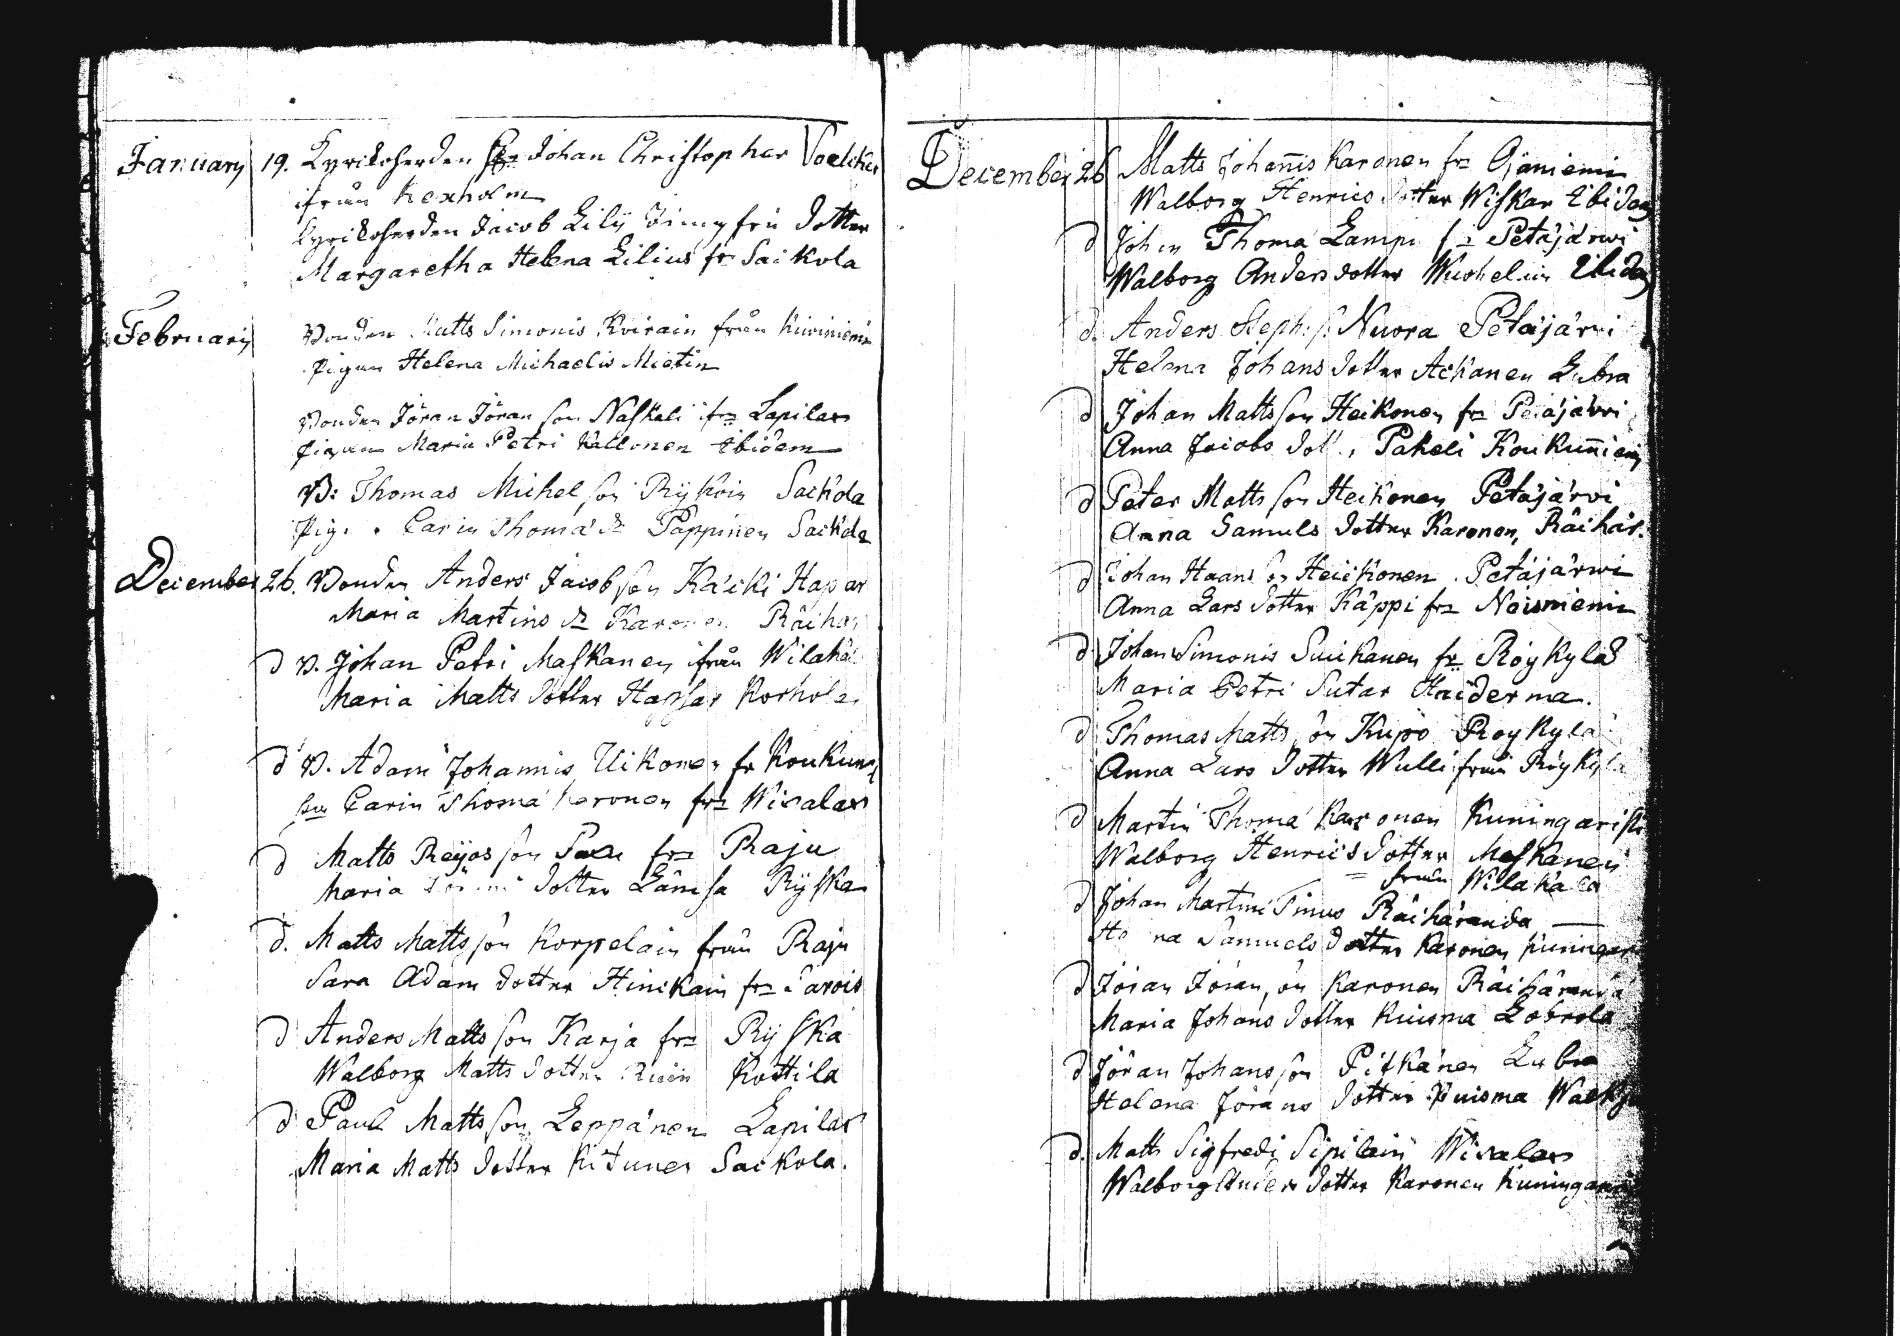 January 19. Kyrckoherden Hr Johan Christopher Voelcker
ifrån Kexholm
Kyrckoherden Jacob Lilij Jungfru dotter
Margaretha Helena Lilius fr Saikola
February Bonden Matts Simonis Koirain från Kiviniemi
Pigan Helena Michaelis Mietin
Bonden Jöran Jöran son Naskali ifr Lapilax
Pigan Maria Petri Kallonen Ibidem
B: Thomas Michel son Ryköin Sackola
Pig. Carin Thomæ dr Pappinen Sackola
December 26. Bonden Anders Jacob son Käcki Hapar
Maria Martins dr Karonen Räihar
d B. Johan Petri Maskanen ifrån Wilaka
Maria Matts dotter Hapsar Korhola
d B. Adam Johannis Uikonen fr Koukun
Carin Thomæ Karonen fr Wisalax
d Matts Reijos son fr Raju
Maria dotter Lämsa Ryska
d. Matts Matts son Korpelain från Raju
Sara Adam dotter Hinikain fr
d Anders Matts son Karja fr Ryska
Walborg Matts dotter Kottila
d Paul Matts son Leppänen Lapilax
Maria Matts dotter Kitunen Saikola.
December 26 Matts Johannis Karonen fr Ojaniemi
Walborg Henrics dotter Wiskar Ibidem
d Johan Thomæ Lampi fr Petäjärwi
Walborg Anders dotter Ibidem
d. Anders Steph. s. Nuora Petäjärwi
Helena Johans dotter Ackanen Lubra
d Johan Matts son Heikonen fr Petäjärwi
Anna Jacobs dot. Pakeli Koukunniemi
d Peter Matts son Heikonen Petäjärvi
Anna Samuels dotter Karonen, Räihär.
d Johan Haans son Heickonen Petäjärwi
Anna Lars dotter Käppi fr Noisniemi
d Johan Simonis Suikanen fr Röykylä
Maria Petri Sutar Haiderma.
d Thomas Matts son Kupo Roykylä
Anna Lars dotter Wulli från Röykylä
d Martin Thomæ Karonen Kuningaristi
Walborg Henrics dotter Maskanen
= från Wilakala
d Johan Martini Pinus Räihäranda
Samuels dotter Karonen Kuningar
d Jöran Jöran son Karonen Räihäranda
Maria Johans dotter Kuisma Lobrola
d Jöran Johans son Pitkänen Lubra
Helena Jörans dotter Puisma Walkja
d. Matts Sigfredi Sipilain Wisalax
Walborg Anders dotter Karonen Kuningari